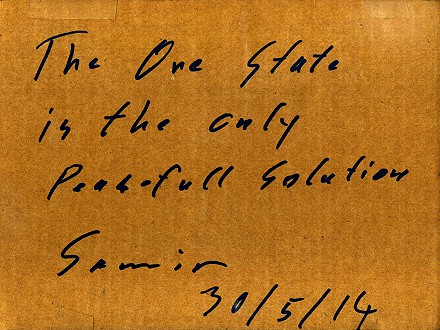 The One State
is the only
Peacefull Solution
Samir
30/5/14